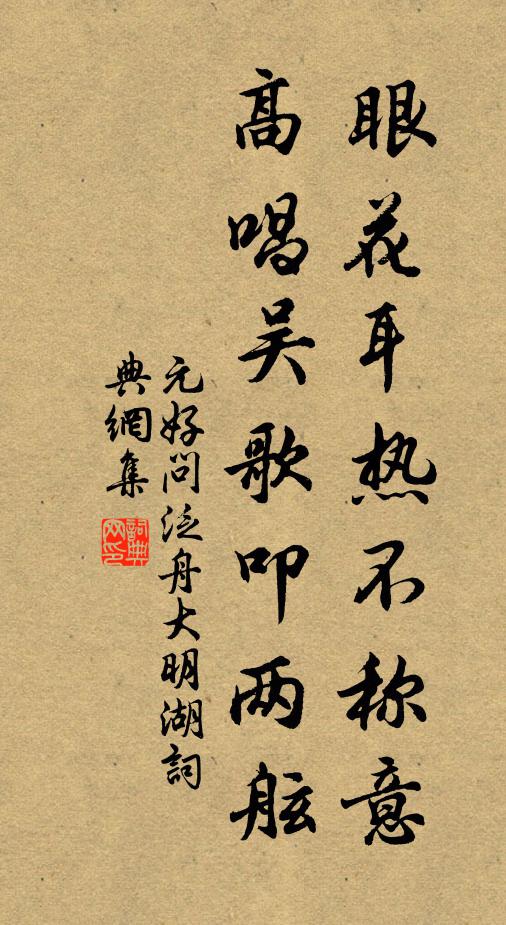 眼花耳热不称意
高唱吴歌叩两舷
元好问泛舟大明湖詞
典網集
詞典网印